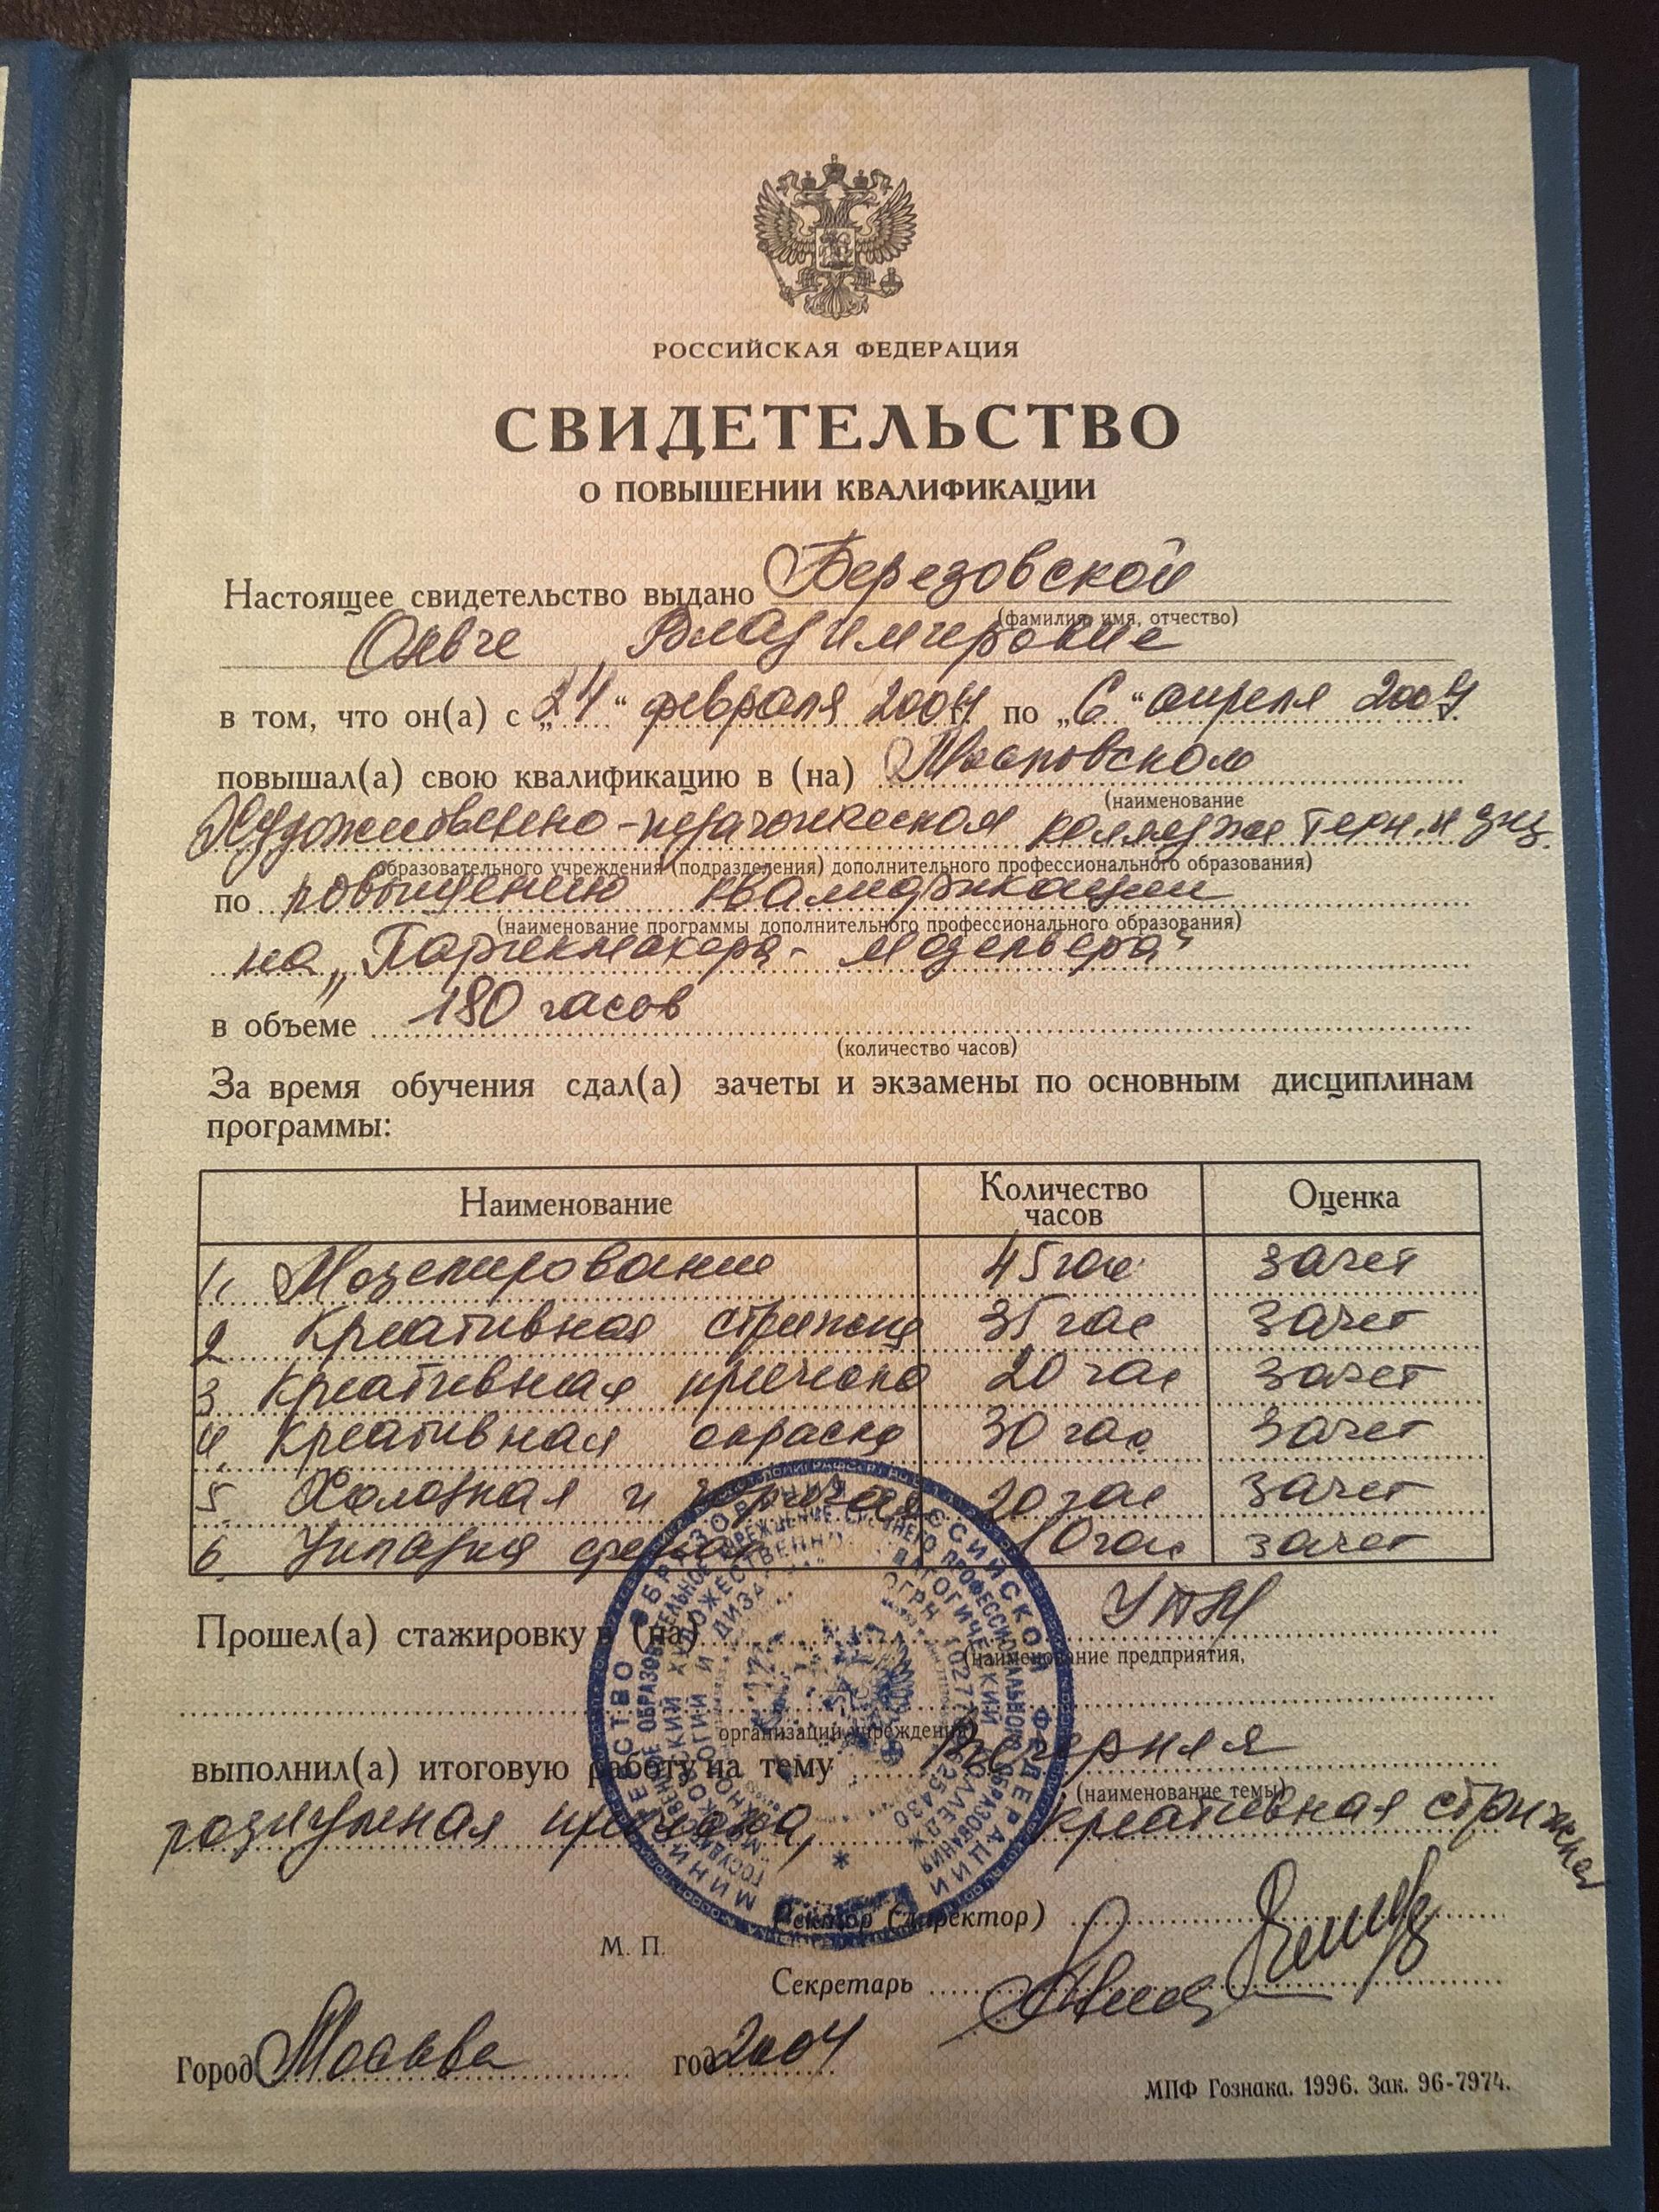 РОССИЙСКАЯ ФЕДЕРАЦИЯ
СВИДЕТЕЛЬСТВО
О ПОВЫШЕНИИ КВАЛИФИКАЦИИ
Настоящее свидетельство выдано Березовской
(фамилия, имя, отчество)
Владимировне
в том, что он(а) с „24“ февраля 2004 г. по „6“ апреля 2004 г.
повышал(а) свою квалификацию в (на) Московском
(наименование
Художественно-педагогическом колледже техн. и диз.
образовательного учреждения (подразделения) дополнительного профессионального образования)
по повышению квалификации
(наименование программы дополнительного профессионального образования)
на „Парикмахера-модельера“
в объеме 180 часов
(количество часов)
За время обучения сдал(а) зачеты и экзамены по основным дисциплинам
программы:
Наименование Количество часов Оценка
1. Моделирование 45 час зачет
2 Креативная стрижка 35 час зачет
3 Креативная прическа 20 час зачет
4. Креативная окраска 30 час зачет
5. Холодная и горячая 20 час зачет
6. Укладка феном 10 час зачет
Прошел(а) стажировку в (на) УПМ
(наименование предприятия,
организации, учреждения)
выполнил(а) итоговую работу на тему Вечерняя
(наименование темы)
прическа, креативная стрижка
Ректор (директор)
М. П.
Секретарь
Город Москва год 2004
МПФ Гознака. 1996. Зак. 96-7974.
МИНИСТЕРСТВО ОБРАЗОВАНИЯ РОССИЙСКОЙ ФЕДЕРАЦИИ